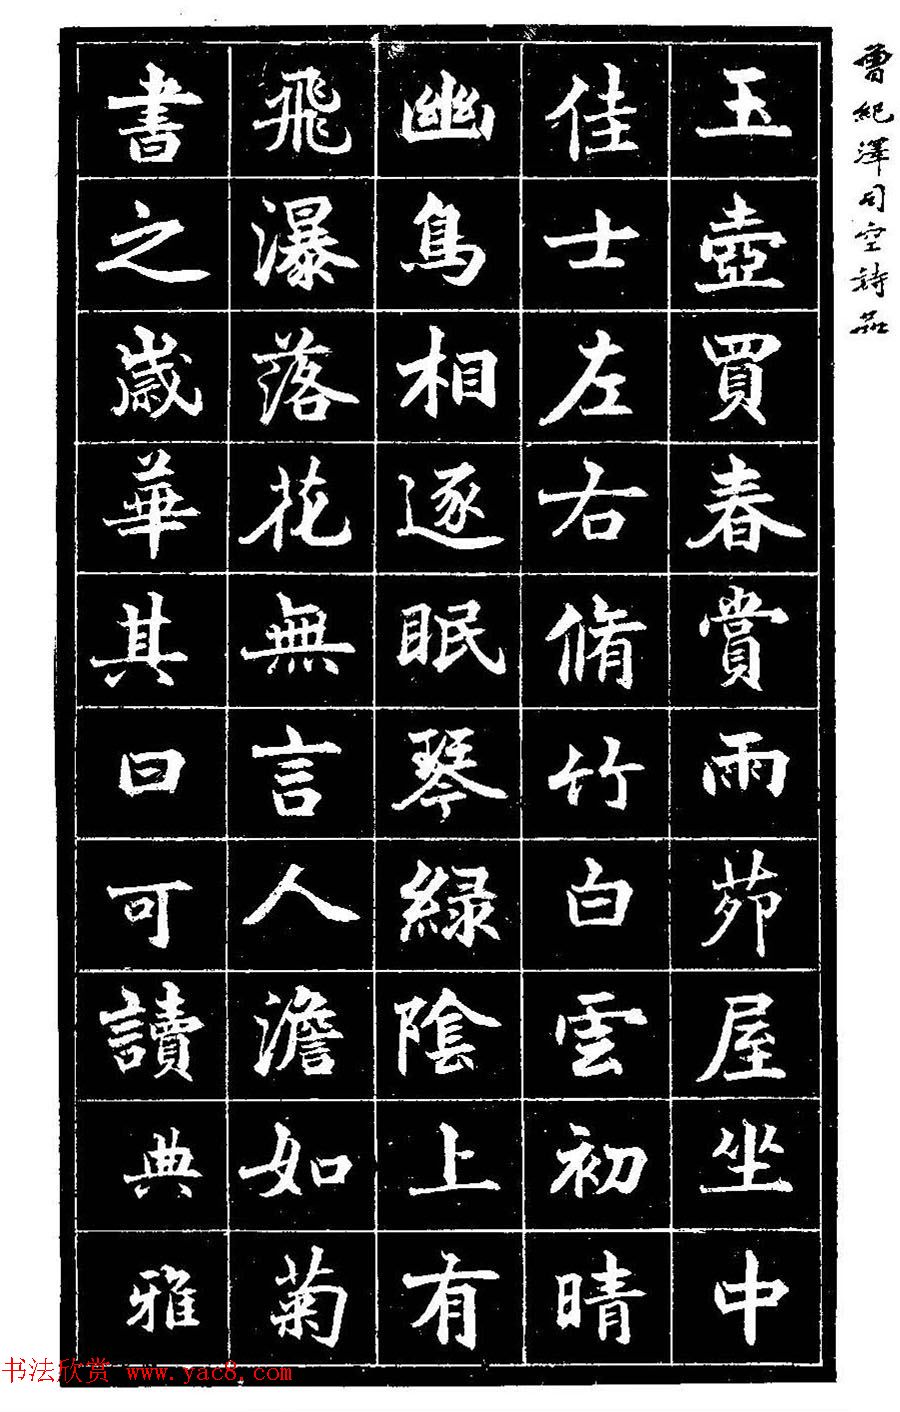 曾紀澤司空詩品
玉壺買春賞雨茆屋坐中
佳士左右脩竹白雲初晴
幽鳥相逐眠琴緑陰上有
飛瀑落花無言人澹如菊
書之歲華其曰可讀典雅
书法欣赏 www.yac8.com